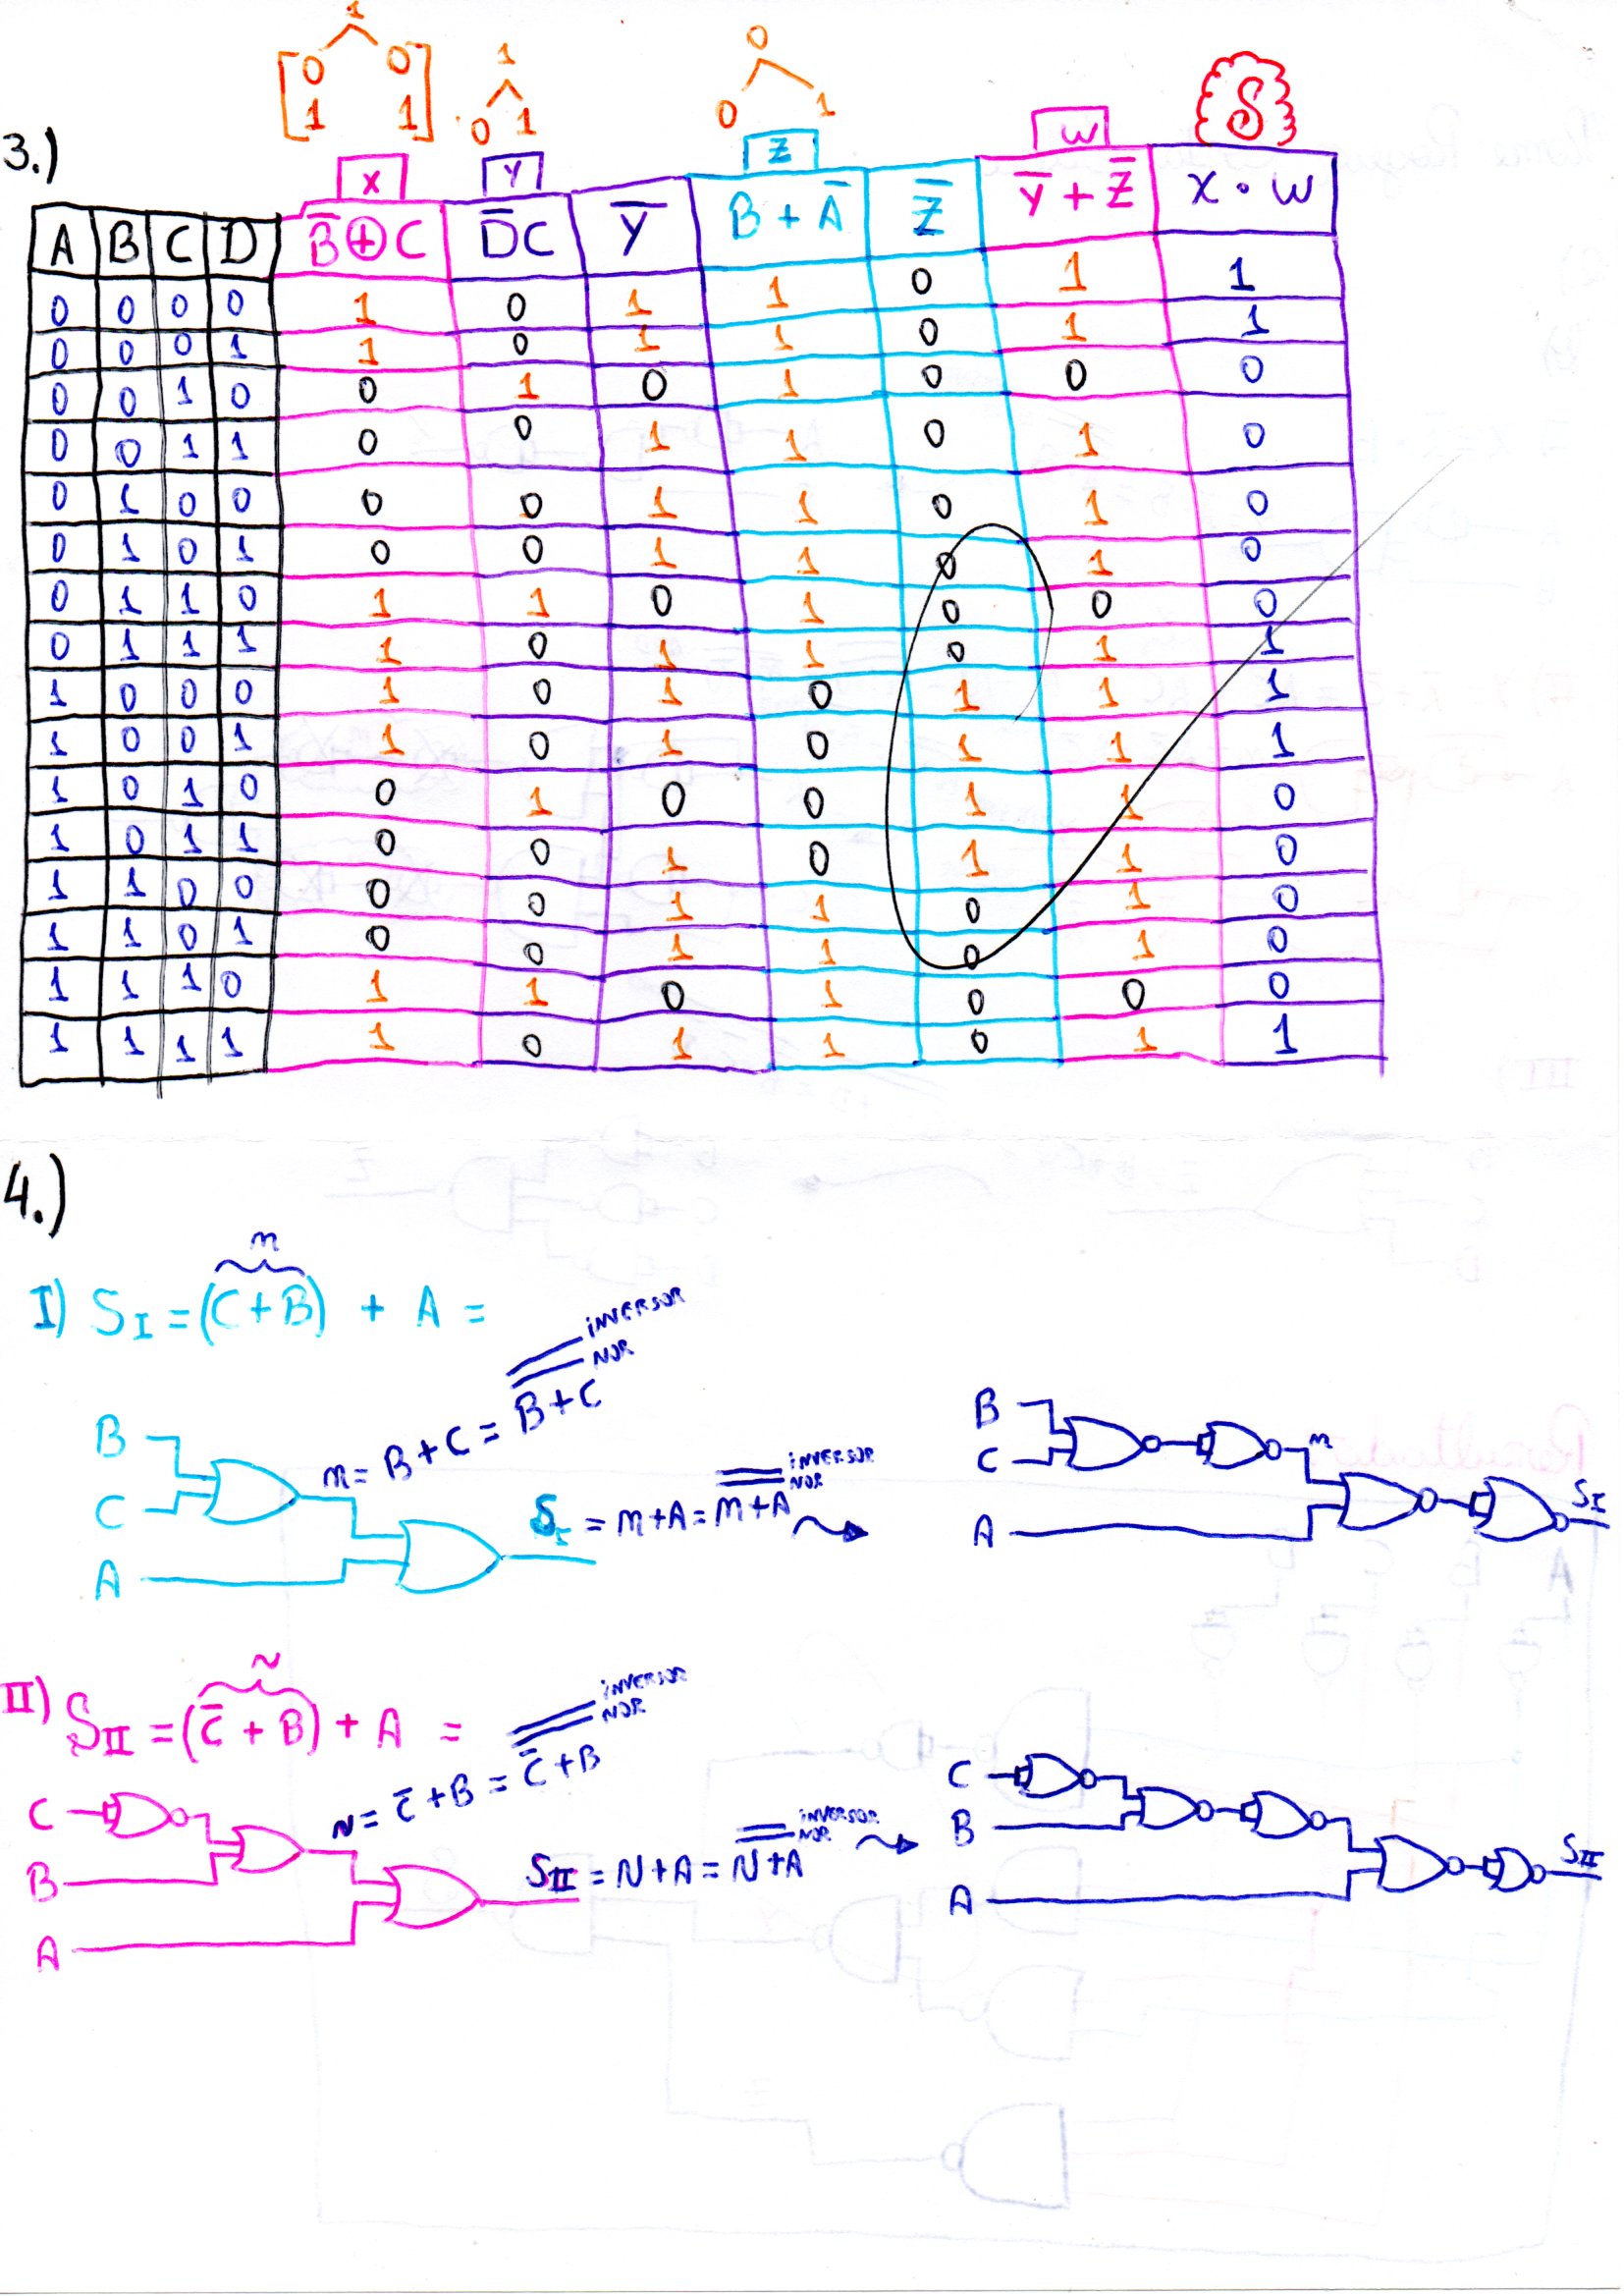 1
0 0 1 0
1 1 0 1 0 1
3.)
X Y Z W S
A B C D B̅⊕C D̅C Y̅ B + A̅ Z̅ Y̅ + Z̅ X • W
0 0 0 0 1 0 1 1 0 1 1
0 0 0 1 1 0 1 1 0 1 1
0 0 1 0 0 1 0 1 0 0 0
0 0 1 1 0 0 1 1 0 1 0
0 1 0 0 0 0 1 1 0 1 0
0 1 0 1 0 0 1 1 0 1 0
0 1 1 0 1 1 0 1 0 0 0
0 1 1 1 1 0 1 1 0 1 1
1 0 0 0 1 0 1 0 1 1 1
1 0 0 1 1 0 1 0 1 1 1
1 0 1 0 0 1 0 0 1 1 0
1 0 1 1 0 0 1 0 1 1 0
1 1 0 0 0 0 1 1 0 1 0
1 1 0 1 0 0 1 1 0 1 0
1 1 1 0 1 1 0 1 0 0 0
1 1 1 1 1 0 1 1 0 1 1
4.)
m
I) S_I = (C+B) + A =
INVERSOR
NOR
m = B + C = B+C
B
C
A
INVERSOR
NOR
S_I = m+A = m+A
B
C
m
A
S_I
N
II) S_II = (C̅ + B) + A =
INVERSOR
NOR
N = C̅ + B = C̅ + B
C
B
A
INVERSOR
NOR
S_II = N+A = N+A
C
B
A
S_II